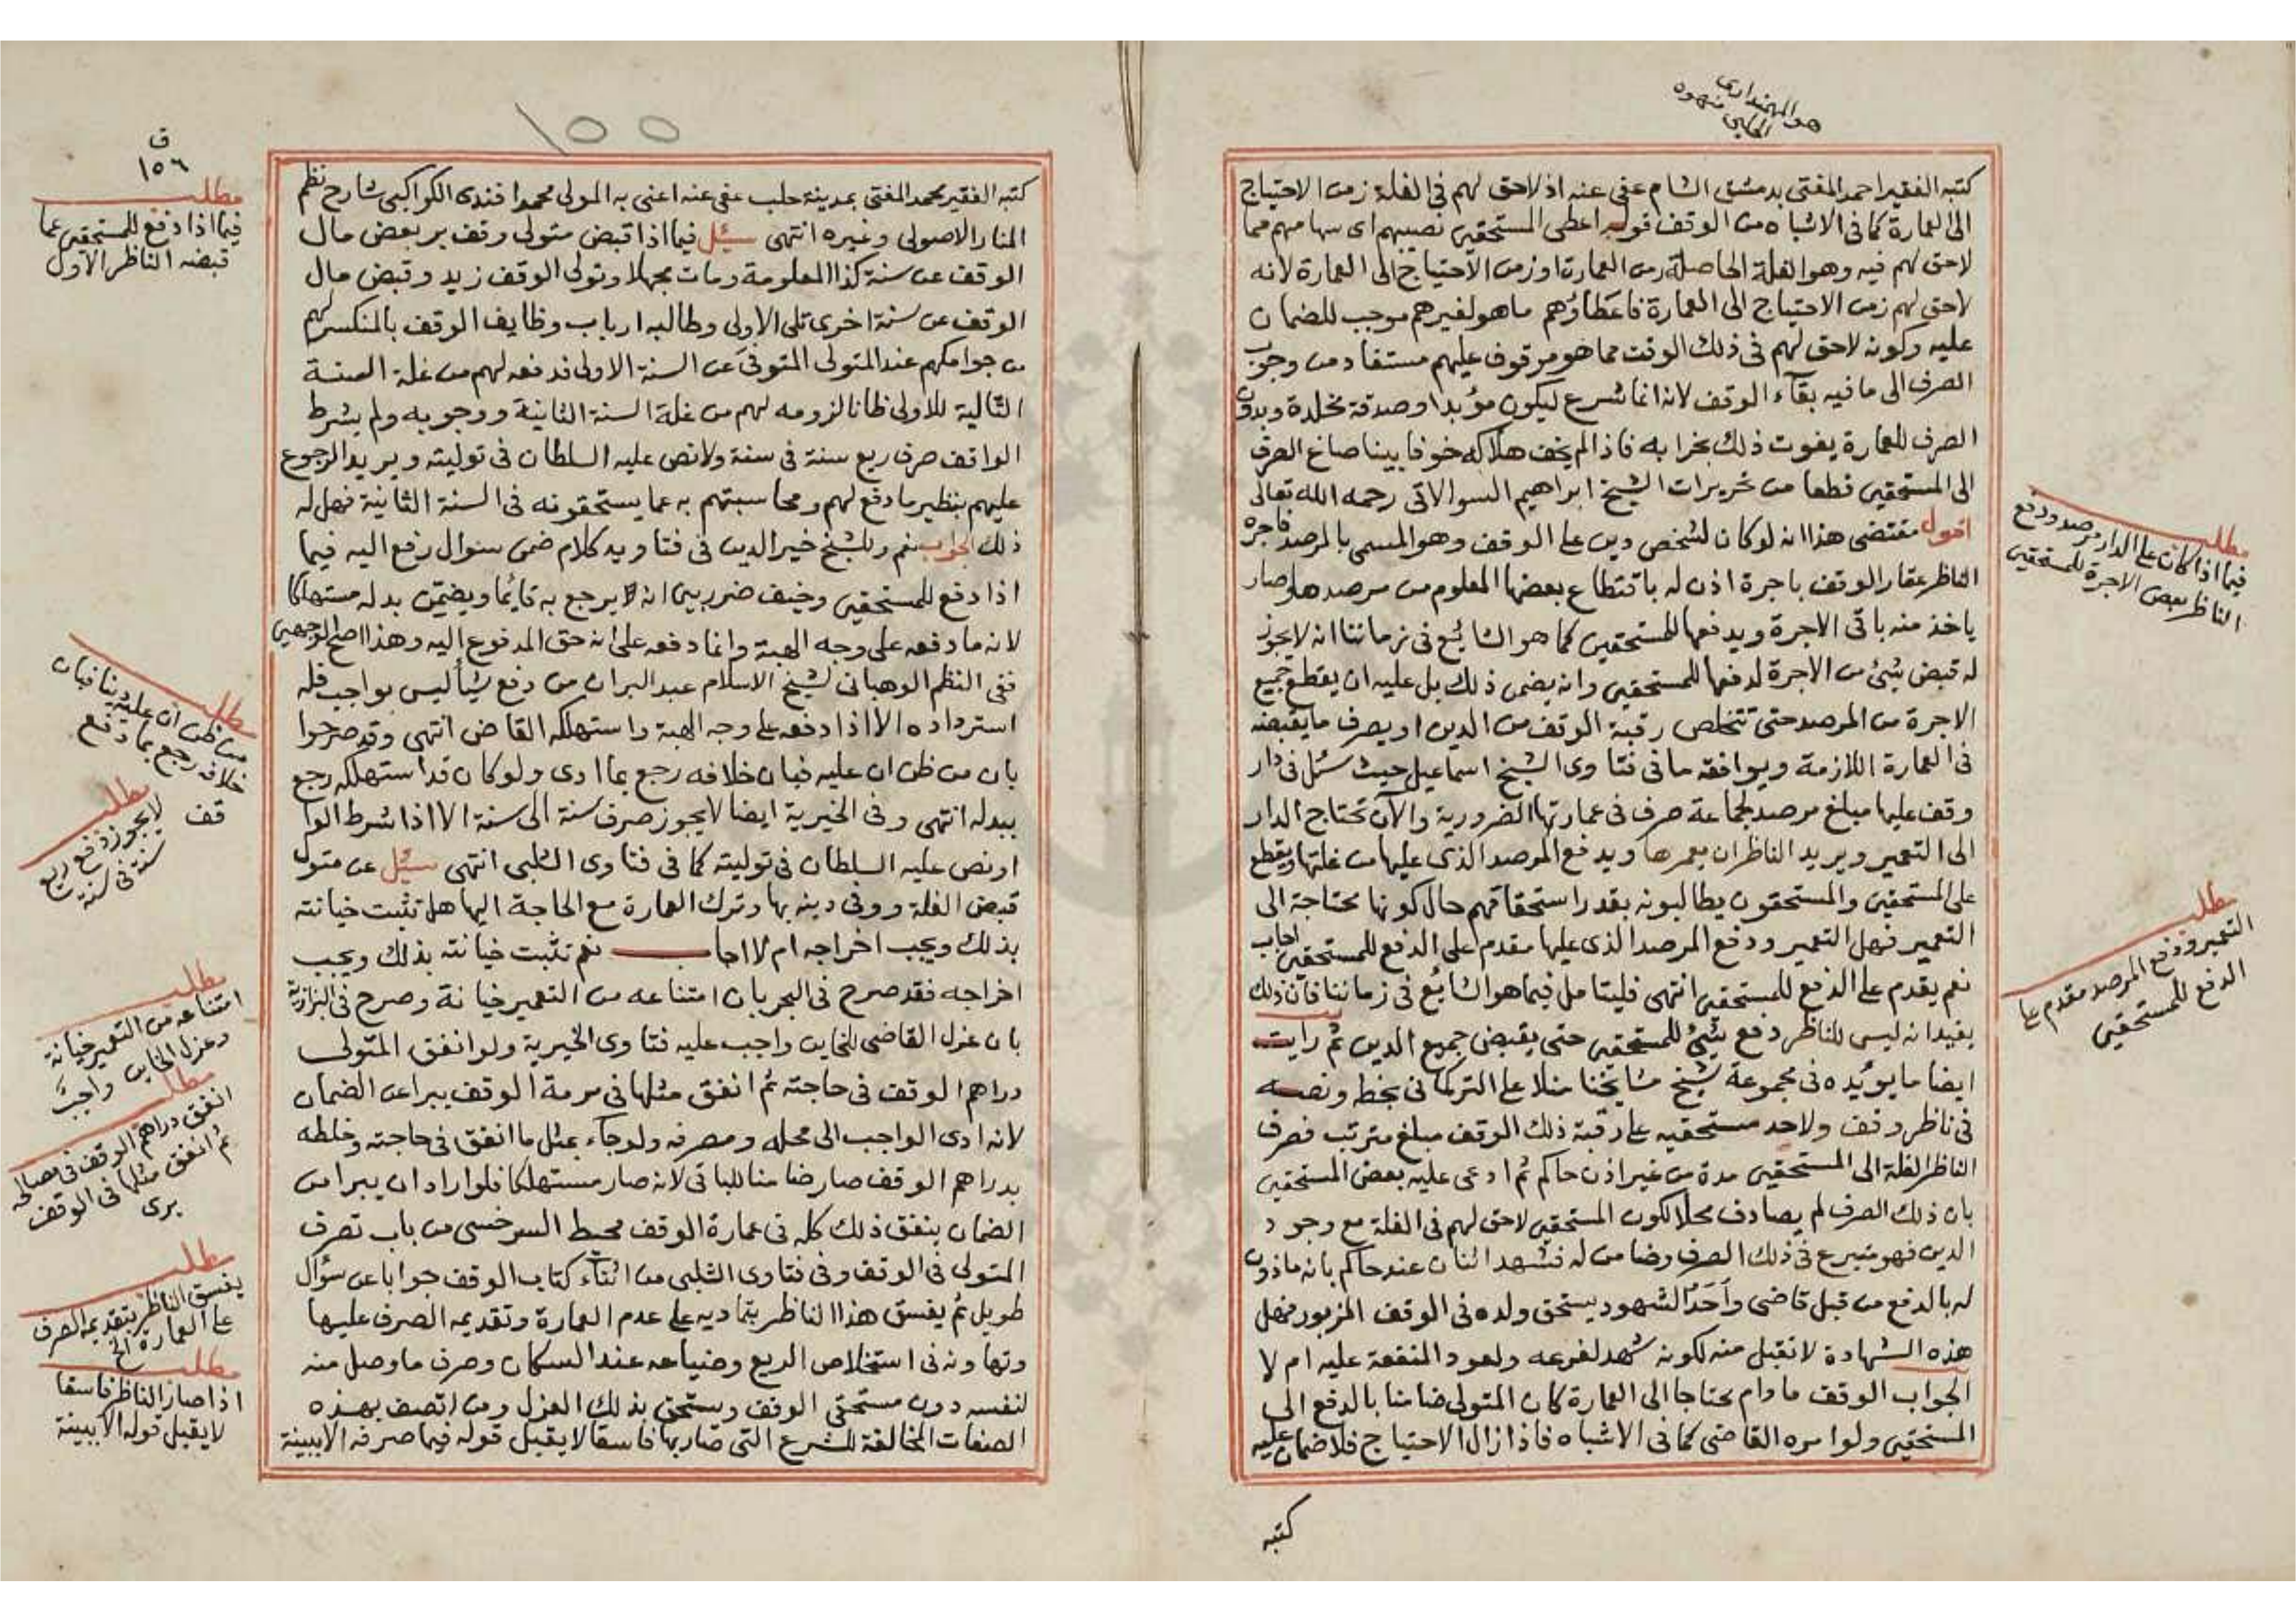 هو المهمنداري
الحلبي منهوه
كتبه الفقير احمد المفتى بدمشق الشام عفى عنه اذ لاحق لهم فى الغلة زمن الاحتياج
الى العمارة كما فى الاشباه من الوقف قوله اعطى المستحقين نصيبهم اى سهامهم مما
لاحق لهم فيه وهو الغلة الحاصلة من العمارة او زمن الاحتياج الى العمارة لانه
لاحق لهم زمن الاحتياج الى العمارة فاعطاؤهم ماهو لغيرهم موجب للضمان
عليه وكونه لاحق لهم فى ذلك الوقت مما هو موقوف عليهم مستفاد من وجوب
الصرف الى ما فيه بقآء الوقف لانه انما شرع ليكون مؤبدا وصدقة مخلدة وبدون
الصرف للعمارة يفوت ذلك بخرابه فاذا لم يخف هلاكه خوفا بينا صاغ الصرف
الى المستحقين قطعا من تحريرات الشيخ ابراهيم السوالاتى رحمه الله تعالى
اقول مقتضى هذا انه لو كان لشخص دين على الوقف وهو المسمى بالمرصد فاجره
الناظر عقار الوقف باجرة اذن له باقتطاع بعضها المعلوم من مرصده وصار
ياخذ منه باقى الاجرة ويدفعها للمستحقين كما هو الشائع فى زماننا انه لايجوز
له قبض شئ من الاجرة لدفعها للمستحقين وانه يضمن ذلك بل عليه ان يقطع جميع
الاجرة من المرصد حتى تتخلص رقبة الوقف من الدين او يصرف مايقبضه
فى العمارة اللازمة ويوافقه ما فى فتاوى الشيخ اسماعيل حيث سئل فى دار
وقف عليها مبلغ مرصد لجماعة صرف فى عمارتها الضرورية والآن تحتاج الدار
الى التعمير ويريد الناظر ان يعمرها ويدفع المرصد الذى عليها من غلتها ويقطع
على المستحقين والمستحقون يطالبونه بقدر استحقاقهم حال كونها محتاجة الى
التعمير فهل التعمير ودفع المرصد الذى عليها مقدم على الدفع للمستحقين اجاب
نعم يقدم على الدفع للمستحقين انتهى فليتامل فيما هو الشائع فى زماننا فان ذلك
يفيد انه ليس للناظر دفع شئ للمستحقين حتى يقبض جميع الدين ثم رايت
ايضا ما يؤيده فى مجموعة شيخ مشايخنا منلا على التركمانى بخطه ونصه
فى ناظر وقف ولاحد مستحقيه على رقبة ذلك الوقف مبلغ مترتب فصرف
الناظر الغلة الى المستحقين مدة من غير اذن حاكم ثم ادعى عليه بعض المستحقين
بان ذلك الصرف لم يصادف محلا لكون المستحقين لاحق لهم فى الغلة مع وجود
الدين فهو متبرع فى ذلك الصرف وضامن له فشهد اثنان عند حاكم بانه ماذون
له بالدفع من قبل قاضى واحد الشهود يستحق ولده فى الوقف المزبور فهل
هذه الشهادة لاتقبل منه لكونه شهد لفرعه ولعود المنفعة عليه ام لا
الجواب الوقف مادام محتاجا الى العمارة كان المتولى ضامنا بالدفع الى
المستحقين ولو امره القاضى كما فى الاشباه فاذا زال الاحتياج فلا ضمان عليه
كتبه
مطلب
فيما اذا كان على الدار مرصد ودفع
الناظر بعض الاجرة للمستحقين
مطلب
التعمير ودفع المرصد مقدم على
الدفع للمستحقين
١٥٥
ق
١٥٦
كتبه الفقير محمد المفتى بمدينة حلب عفى عنه اعنى به المولى محمد افندى الكواكبى شارح نظم
المنار الاصولى وغيره انتهى سئل فيما اذا قبض متولى وقف بر بعض مال
الوقف عن سنة كذا المعلومة ومات مجهلا وتولى الوقف زيد وقبض مال
الوقف عن سنة اخرى تلى الاولى وطالبه ارباب وظايف الوقف بالمنكسر لهم
من جوامكهم عند المتولى المتوفى عن السنة الاولى فدفعه لهم من غلة السنة
التالية للاولى ظانا لزومه لهم من غلة السنة الثانية ووجوبه ولم يشرط
الواقف صرف ريع سنة فى سنة ولا نص عليه السلطان فى توليته ويريد الرجوع
عليهم بنظير ما دفع لهم ومحاسبتهم به عما يستحقونه فى السنة الثانية فهل له
ذلك الجواب نعم وللشيخ خير الدين فى فتاويه كلام ضمن سوال رفع اليه فيما
اذا دفع للمستحقين وخيف ضرر بين انه لا يرجع به قائما ويضمن بدله مستهلكا
لانه ما دفعه على وجه الهبة وانما دفعه على انه حق المدفوع اليه وهذا اصح الوجهين
ففى النظم الوهبانى لشيخ الاسلام عبد البر ان من دفع شيأ ليس بواجب فله
استرداده الا اذا دفعه على وجه الهبة واستهلكه القابض انتهى وقد صرحوا
بان من ظن ان عليه فبان خلافه رجع بما ادى ولو كان قد استهلكه رجع
ببدله انتهى وفى الخيرية ايضا لايجوز صرف سنة الى سنة الا اذا شرط الوا
قف
او نص عليه السلطان فى توليته كما فى فتاوى الشلبى انتهى سئل عن متولى
قبض الغلة ووفى دينه بها وترك العمارة مع الحاجة اليها هل تثبت خيانته
بذلك ويجب اخراجه ام لا اجاب نعم تثبت خيانته بذلك ويجب
اخراجه فقد صرح فى البحر بان امتناعه من التعمير خيانة وصرح فى البزازية
بان عزل القاضى للخاين واجب عليه فتاوى الخيرية ولو انفق المتولى
دراهم الوقف فى حاجته ثم انفق مثلها فى مرمة الوقف يبرا عن الضمان
لانه ادى الواجب الى محله ومصرفه ولو جآء بمثل ما انفق فى حاجته وخلطه
بدراهم الوقف صار ضامنا للباقى لانه صار مستهلكا فلو اراد ان يبرا من
الضمان ينفق ذلك كله فى عمارة الوقف محيط السرخسى من باب تصرف
المتولى فى الوقف وفى فتاوى الشلبى من اثنآء كتاب الوقف جوابا عن سؤال
طويل ثم يفسق هذا الناظر بتماديه على عدم العمارة وتقديمه الصرف عليها
وتهاونه فى استخلاص الريع وضياعه عند السكان وصرف ما وصل منه
لنفسه دون مستحقى الوقف ويستحق بذلك العزل ومن اتصف بهذه
الصفات المخالفة للشرع التى صار بها فاسقا لايقبل قوله فيما صرفه الا ببينة
مطلب
فيما اذا دفع للمستحقين عما
قبضه الناظر الاول
مطلب
من ظن ان عليه دينا فبان
خلافه رجع بما دفع
مطلب
لا يجوز دفع ريع
سنة فى سنة
مطلب
امتناعه من التعمير خيانة
وعزل الخاين واجب
مطلب
انفق دراهم الوقف فى مصالحه
ثم انفق مثلها فى الوقف
يبرى
مطلب
يفسق الناظر بتقديم الصرف
على العمارة الخ
مطلب
اذا صار الناظر فاسقا
لا يقبل قوله الا ببينة